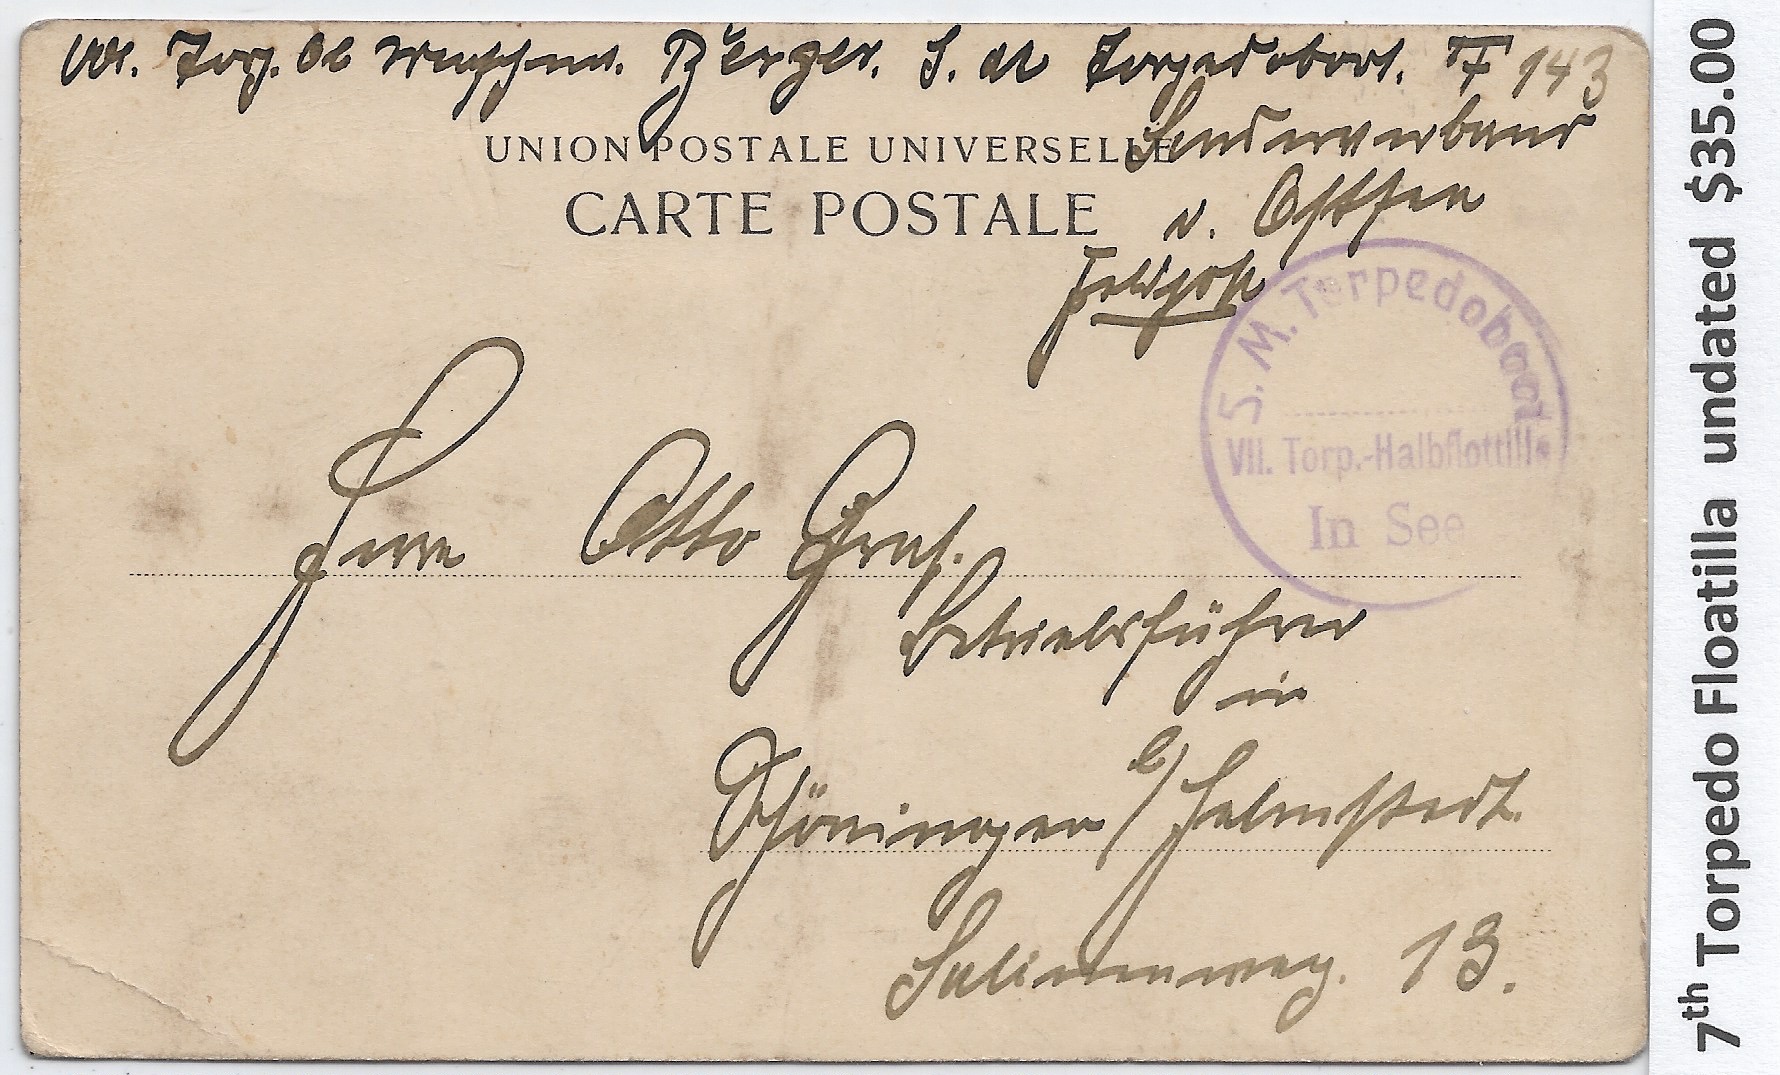 Torp. Ob Berger. S. M. Torpedoboot. T 143
UNION POSTALE UNIVERSELLE
Sonderverband
CARTE POSTALE
d. Ostsee
Feldpost
S. M. Torpedoboot
VII. Torp.-Halbflottille
In See
Herrn Otto Graf.
Betriebsführer
in
Schöningen b/Helmstedt.
Salinenweg. 13.
7th Torpedo Floatilla undated $35.00